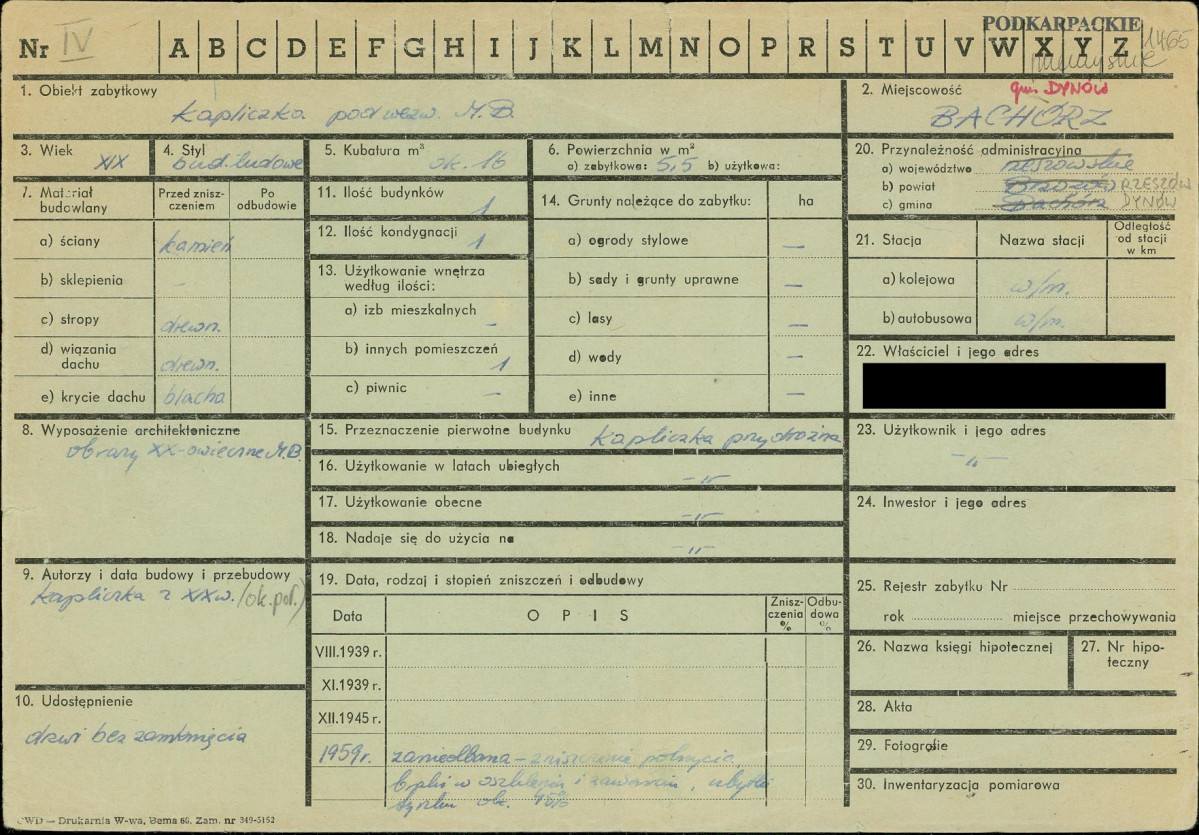 Nr IV A B C D E F G H I J K L M N O P R S T U V W X Y Z
PODKARPACKIE
1465
1. Obiekt zabytkowy
kapliczka pod wezw. M.B.
2. Miejscowość
gm. DYNÓW
BACHÓRZ
3. Wiek XIX
4. Styl
bud. ludowe
5. Kubatura m³ ok. 16
6. Powierzchnia w m²
a) zabytkowa: 5,5 b) użytkowa:
20. Przynależność administracyjna
a) województwo rzeszowskie
b) powiat Brzozów RZESZÓW
c) gmina Bachórz DYNÓW
7. Materiał budowlany
Przed zniszczeniem
Po odbudowie
a) ściany kamień
b) sklepienia –
c) stropy drewn.
d) wiązania dachu drewn.
e) krycie dachu blacha
11. Ilość budynków 1
12. Ilość kondygnacji 1
13. Użytkowanie wnętrza
według ilości:
a) izb mieszkalnych –
b) innych pomieszczeń 1
c) piwnic –
14. Grunty należące do zabytku: ha
a) ogrody stylowe —
b) sady i grunty uprawne —
c) lasy —
d) wody —
e) inne —
21. Stacja
Nazwa stacji
Odległość
od stacji
w km
a) kolejowa w/m.
b) autobusowa w/m.
22. Właściciel i jego adres
8. Wyposażenie architektoniczne
obrazy XX-owieczne M.B.
15. Przeznaczenie pierwotne budynku kapliczka przydrożna
16. Użytkowanie w latach ubiegłych –"–
17. Użytkowanie obecne –"–
18. Nadaje się do użycia na –"–
23. Użytkownik i jego adres
–"–
24. Inwestor i jego adres
9. Autorzy i data budowy i przebudowy
kapliczka z XIXw. (ok. poł.)
10. Udostępnienie
drzwi bez zamknięcia
19. Data, rodzaj i stopień zniszczeń i odbudowy
Data
OPIS
Zniszczenia %
Odbudowa %
VIII.1939 r.
XI.1939 r.
XII.1945 r.
1959 r. zaniedbana – zniszczenie pokrycia,
ubytki
tynku ok. 45%
25. Rejestr zabytku Nr
rok miejsce przechowywania
26. Nazwa księgi hipotecznej
27. Nr hipoteczny
28. Akta
29. Fotografie
30. Inwentaryzacja pomiarowa
CWD — Drukarnia W-wa, Bema 65. Zam. nr 349-5152